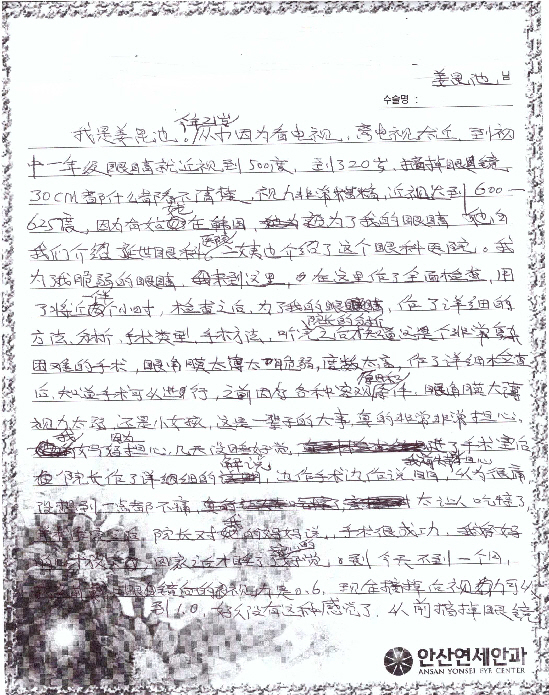 姜昆池 님
수술명 :
我是姜昆池，从小因为看电视，离电视太近，到初
中一年级眼睛就近视到500度，到了20岁，摘掉眼镜
30CM都什么都看不清楚，视力非常模糊，近视大到600-
625度，因为有姑姑在韩国，为了我的眼睛 她向
我们介绍延世眼科医院，也介绍了这个眼科医院。我
为了我脆弱的眼睛 来到这里，在这里作了全面检查，用
了将近两个小时，检查之后，为了我的眼睛，作了详细的
方法，分析，手术类型，手术方法，听完院长的分析之后才知道这是个非常
困难的手术，眼角膜太薄太脆弱，度数太高，作了详细检查
后，知道手术可以进行，之前因有各种客观条件，眼角膜太薄
视力太弱，还是小女孩，这是一辈子的大事，真的非常非常担心。
我妈妈担心，几天没睡好觉，进了手术室后
院长作了详细的解说，边作手术边作说明，以为很痛
没想到一点都不痛，太让人吃惊了，
院长对我的妈妈说，手术很成功，我妈妈
回家之后才睡了，到今天不到一个月，
视力是0.6，现在摘掉后视力可以
到1.0 好久没有这种感觉了，从前摘掉眼镜
안산연세안과
ANSAN YONSEI EYE CENTER